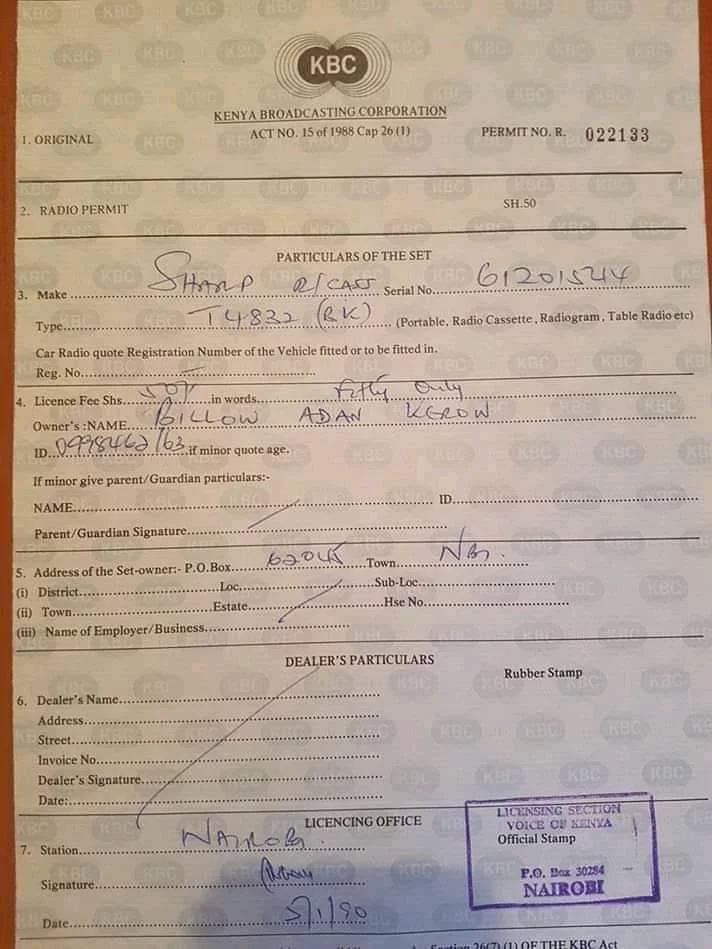 KBC
KENYA BROADCASTING CORPORATION
1. ORIGINAL ACT NO. 15 of 1988 Cap 26 (1) PERMIT NO. R. 022133
2. RADIO PERMIT SH.50
PARTICULARS OF THE SET
3. Make SHARP R/CASS Serial No. 61201544
Type T4832 (BK) (Portable, Radio Cassette, Radiogram, Table Radio etc)
Car Radio quote Registration Number of the Vehicle fitted or to be fitted in.
Reg. No.
4. Licence Fee Shs. 50/- in words Fifty Only
Owner's :NAME BILLOW ADAN KEROW
ID 0998462/63 if minor quote age.
If minor give parent/Guardian particulars:-
NAME ID
Parent/Guardian Signature
5. Address of the Set-owner:- P.O.Box 62045 Town NBI.
(i) District Loc. Sub-Loc
(ii) Town Estate Hse No.
(iii) Name of Employer/Business
DEALER'S PARTICULARS
Rubber Stamp
6. Dealer's Name
Address
Street
Invoice No.
Dealer's Signature
Date:
LICENCING OFFICE
7. Station NAIROBI.
Signature
Date 5/1/90
LICENSING SECTION
VOICE OF KENYA
Official Stamp
P.O. Box 30284
NAIROBI
Section 26(7) (1) OF THE KBC Act